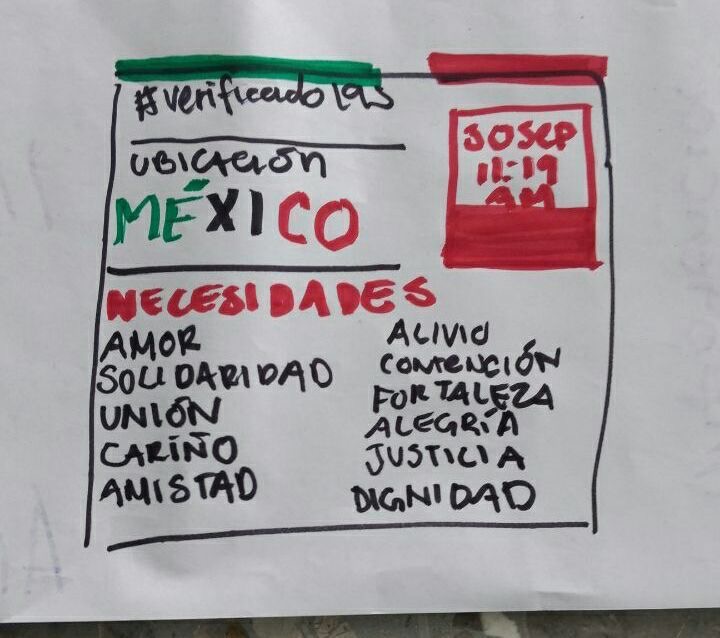 #verificado19s
UBICACIÓN
MÉXICO
30SEP
11:19
AM
NECESIDADES
AMOR
SOLIDARIDAD
UNIÓN
CARIÑO
AMISTAD
ALIVIO
CONTENCIÓN
FORTALEZA
ALEGRÍA
JUSTICIA
DIGNIDAD